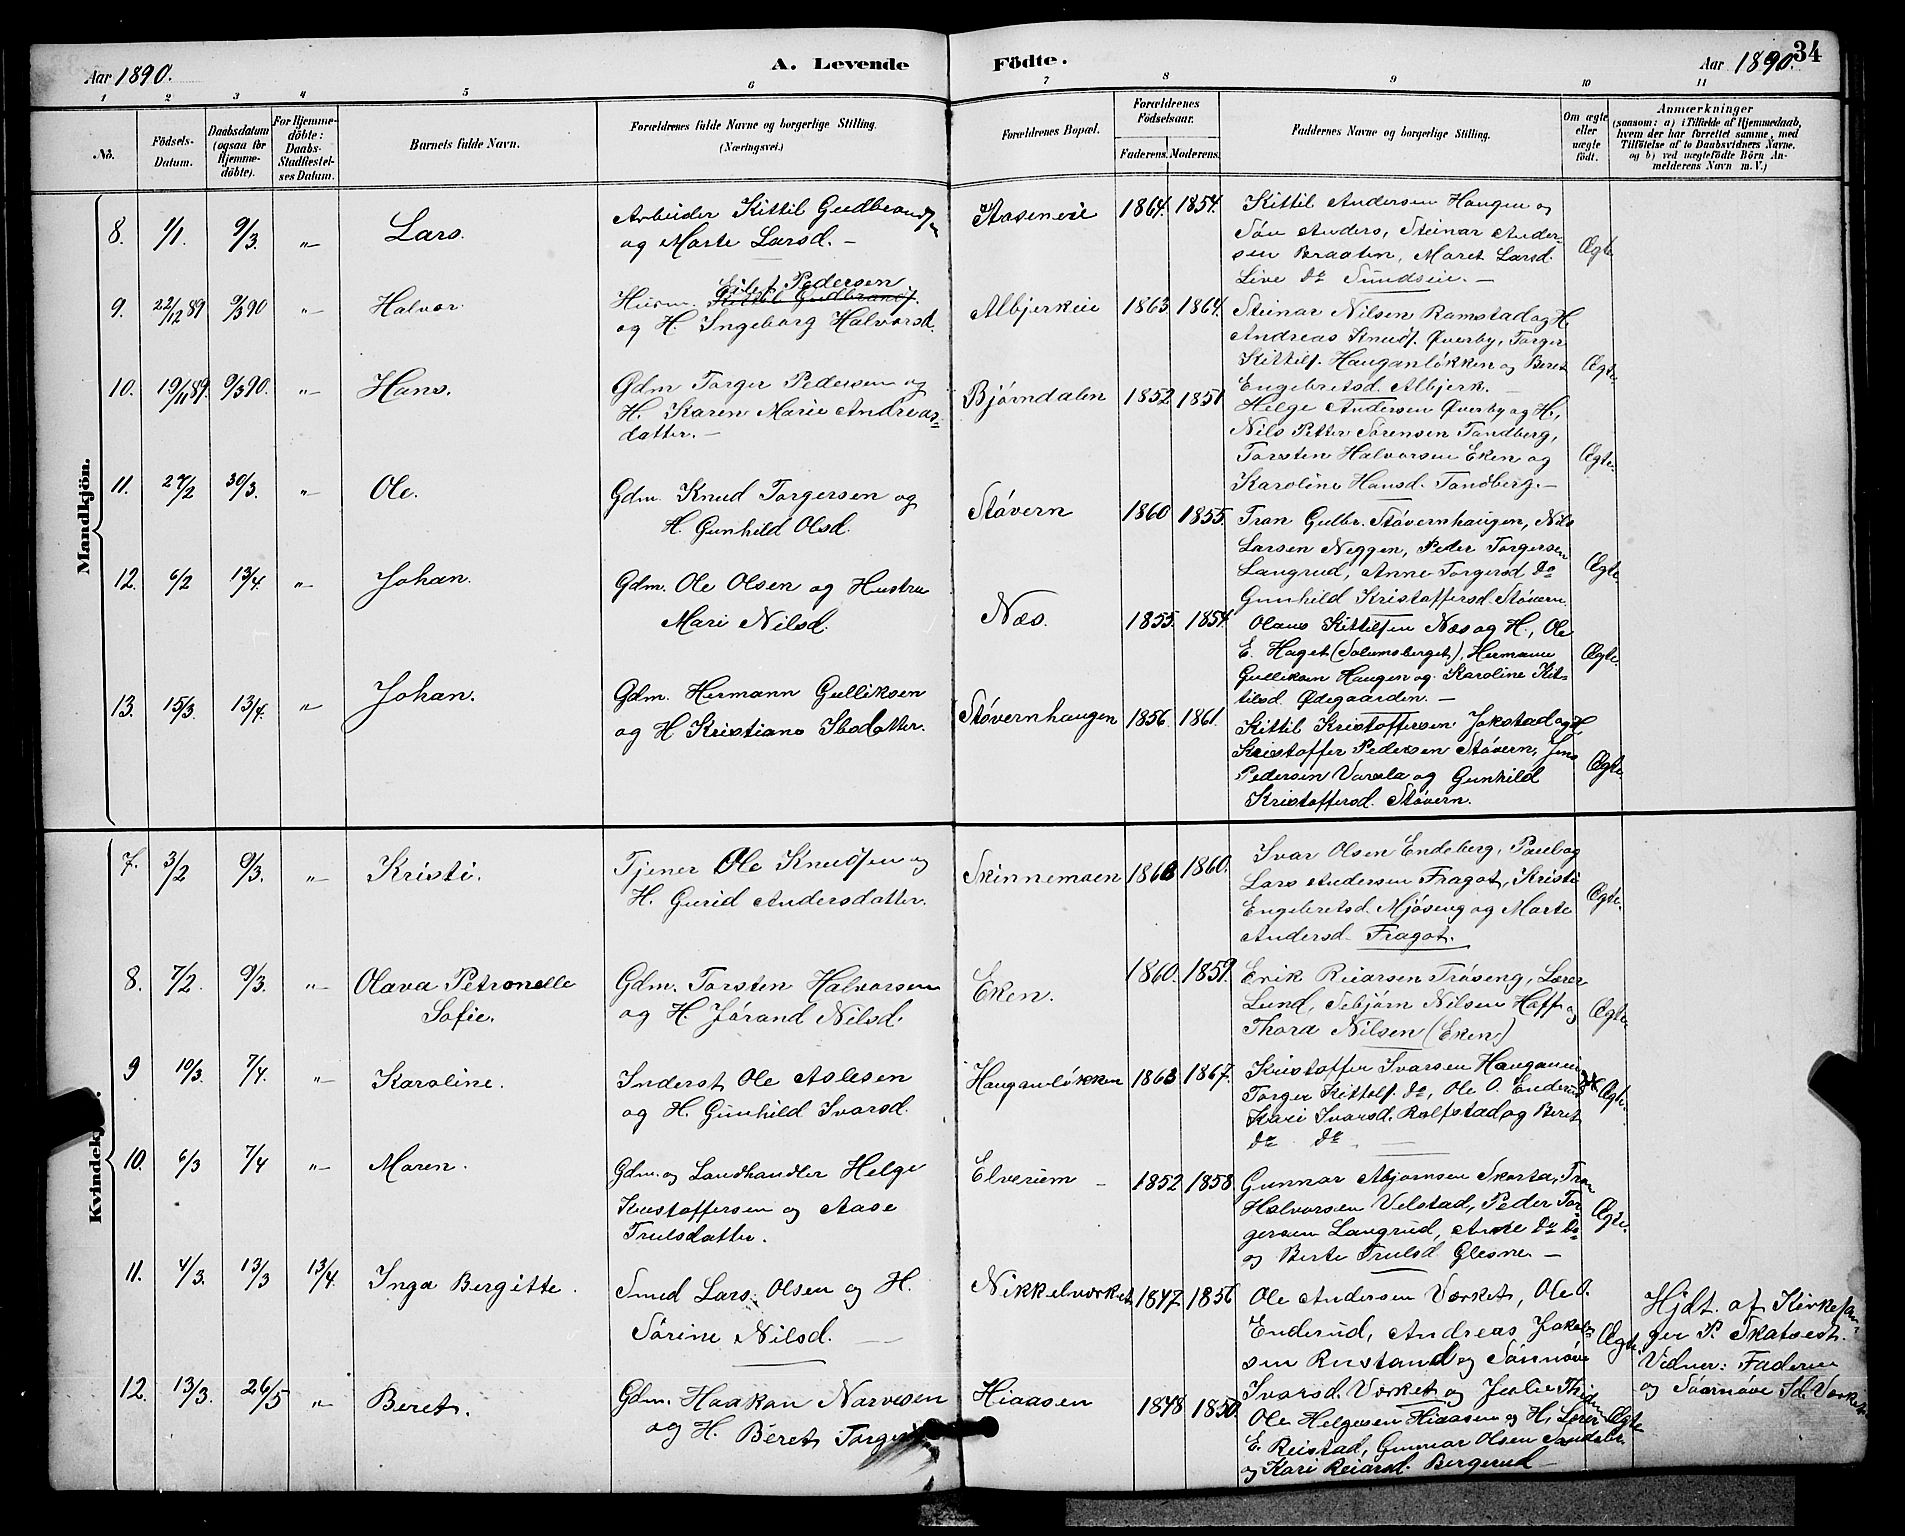 Aar 1890.
A. Levende Födte.
Aar 1890. 34
1 2 3 4 5 6 7 8 9 10 11
No.
Födsels-Datum.
Daabsdatum (ogsaa for Hjemmedöbte).
For Hjemmedöbte: Daabs-Stadfæstelses Datum.
Barnets fulde Navn.
Forældrenes fulde Navne og borgerlige Stilling. (Næringsvei.)
Forældrenes Bopæl.
Forældrenes Födselsaar.
Faderens. Moderens.
Faddernes Navne og borgerlige Stilling.
Om ægte eller uægte födt.
Anmærkninger
(saasom: a) i Tilfælde af Hjemmedaab,
hvem der har forrettet samme, med
Tilföielse af to Daabsvidners Navne.
og b) ved uægtefödte Börn Anmelderens Navn m.V.)
Mandkjön.
8. 1/1. 9/3. „ Lars.
Arbeider Kittil Gudbrands.
og Marte Larsd. —
Aaseneie 1864. 1854.
Kittil Andersen Haugen og
Søn Anders, Steinar Ander-
sen Braaten, Maret Larsd.
Live do Sundseie. —
Ægte
9. 22/12 89 9/3 90 „ Halvor.
Eilef Pedersen
Husm. Kittil Gudbrands.
og H. Ingeborg Halvorsd.
Albjerkeie 1863. 1864.
Steinar Nilsen Ramstad og H.
Andreas Knuds. Øverby, Torger
Kittils. Hauganløkken og Beret
Engebretsd. Albjerk. —
Ægte
10. 19/11 89. 9/3 90. „ Hans.
Gdm Torger Pedersen og
H. Karen Marie Andreas-
datter. —
Bjørndalen 1852 1851
Helge Andersen Øverby og H.,
Nils Petter Sørensen Tandberg,
Torsten Halvorsen Eken og
Karoline Hansd. Tandberg. —
Ægte.
11. 27/2 30/3. „ Ole.
Gdm. Knud Torgersen og
H. Gunhild Olsd.
Støvern 1860 1855.
Tron Gulbr. Støvernhaugen, Nils
Larsen Neggen, Peder Torgersen
Langrud, Anne Torgersd do
Gunhild Kristoffersd. Støvern.
Ægte.
12. 6/2 13/4. „ Johan.
Gdm. Ole Olsen og Hustru
Mari Nilsd.
Næs. 1855. 1854.
Olaus Kittilsen Næs og H., Ole
E. Haget (Solumsberget), Hermann
Gulliksen Haugen og Karoline Kit-
tilsd Ødegaarden. —
Ægte.
13. 15/3. 13/4. „ Johan.
Gdm. Hermann Gulliksen
og H Kristiane Ibsdatter.
Støvernhaugen 1856 1861.
Kittil Kristoffersen Jokstad og H
Kristoffer Pedersen Støvern, Jens
Pedersen Varala og Gunhild
Kristoffersd. Støvern.
Ægte
Kvindekj
7. 3/2 9/3. „ Kristi.
Tjener Ole Knudsen og
H. Gurid Andersdatter.
Skinnemoen 1863 1860.
Ivar Olsen Endeberg, Paul og
Lars Andersen Fragot, Kristi
Engebretsd. Mjøseng og Marte
Andersd. Fragot.
Ægte.
8. 7/2. 9/3. „ Olava Petronelle
Sofie.
Gdm. Torsten Halvorsen
og H. Jørand Nilsd.
Eken. 1860. 1859.
Erik Reiarsen Trøseng, Lærer
Lund, Sebjørn Nilsen Hoff og
Thora Nilsen (Eken)
Ægte
9 10/3. 7/4. „ Karoline.
Inderst Ole Aslesen
og H. Gunhild Ivarsd.
Hauganløkken 1863 1867.
Kristoffer Ivarsen Hauganeie
Torger Kittels. do, Ole O. Enderud
Kari Ivarsd. Rolfstad og Beret
do do —
Ægte.
10. 6/3 7/4 „ Maren.
Gdm. og Landhandler Helge
Kristoffersen og Aase
Trulsdatter.
Elverum — 1852 1858.
Gunnar Asbjørnsen Skarta, Tron
Halvorsen Velstad, Peder Tor-
gersen Langrud, Anne do do
og Berte Trulsd. Glesne. —
Ægte.
11. 4/3. 13/3 13/4. Inga Bergitte.
Smed Lars Olsen og H.
Sørine Nilsd. —
Nikkelværket 1847 1856
Ole Andersen Værket, Ole O.
Enderud, Andreas Jakob-
sen Rustand og Sønnøve
Ivarsd. Værket og Julie
Ægte
Hjdt. af Kirkesan-
ger P. Skatvedt.
Vidner: Faderen
og Sønnøve Id. Værket
12. 13/3. 26/5 „ Beret.
Gdm. Haakon Narvesen
og H. Beret
Hiaasen 1848 1850.
Ole Helgesen Hiaasen og H, Lærer
E. Reistad, Gunnar Olsen
og Kari Reiarsd. Bergerud —
Ægte